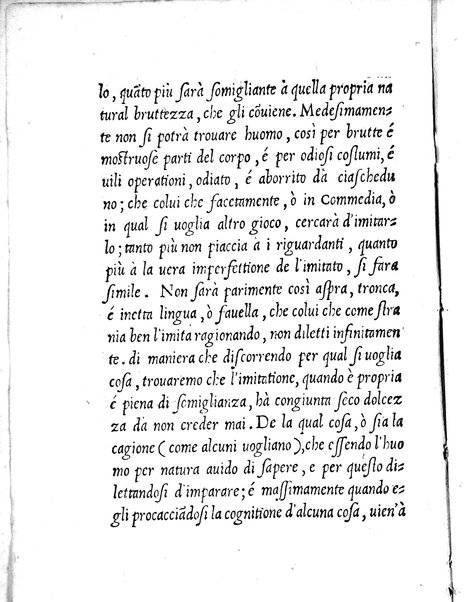 lo, quãto più sarà somigliante à quella propria na
tural bruttezza, che gli cõuiene. Medesimamen-
te non si potrà trouare huomo, così per brutte é
mostruose parti del corpo, é per odiosi costumi, é
uili operationi, odiato, é aborrito dà ciaschedu
no; che colui che facetamente, ò in Commedia, ò
in qual si uoglia altro gioco, cercarà d'imitar-
lo; tanto più non piaccia à i riguardanti, quanto
più à la uera imperfettione de l'imitato, si fara
simile. Non sarà parimente così aspra, tronca,
é inetta lingua, ò fauella, che colui che come stra
nia ben l'imita ragionando, non diletti infinitamen
te. di maniera che discorrendo per qual si uoglia
cosa, trouaremo che l'imitatione, quando è propria
é piena di somiglianza, hà congiunta seco dolcez
za dà non creder mai. De la qual cosa, ò sia la
cagione (come alcuni uogliano), che essendo l'huo
mo per natura auido di sapere, e per questo di-
lettandosi d'imparare; é massimamente quando e-
gli procacciãdosi la cognitione d'alcuna cosa, uien'à